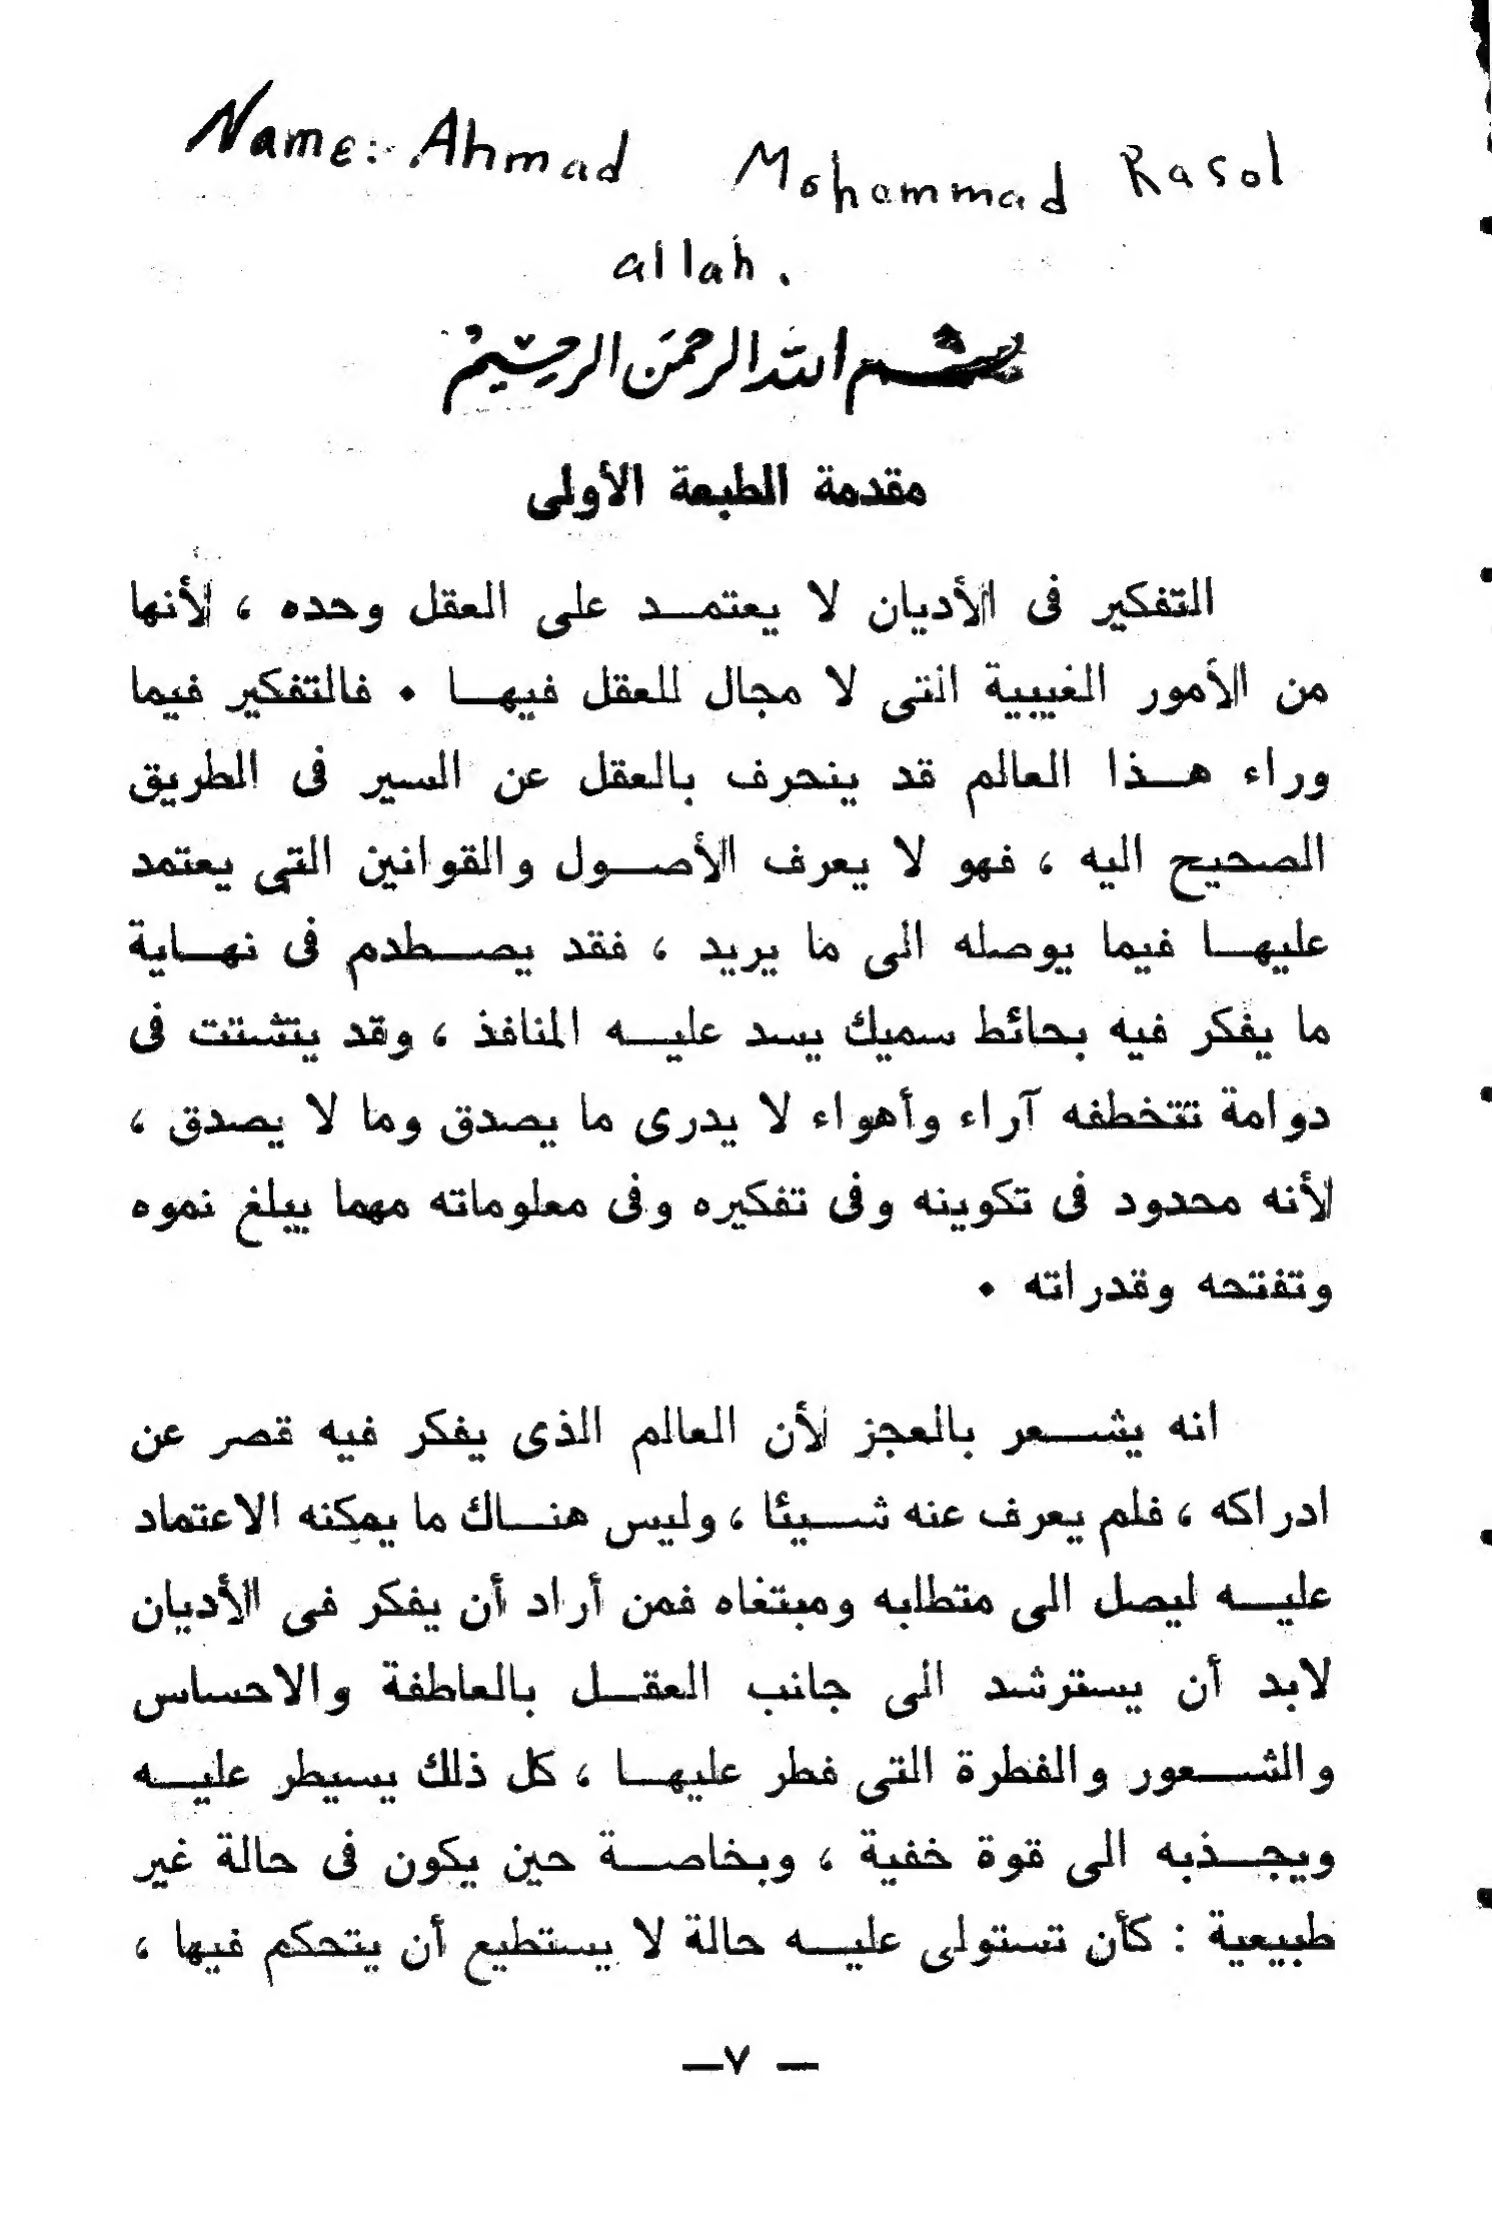 Name:- Ahmad Mohammad Rasol
allah.
بسم الله الرحمن الرحيم
مقدمة الطبعة الأولى
التفكير فى الأديان لا يعتمـد على العقل وحده ، لأنها
من الأمور الغيبية التى لا مجال للعقل فيهـا • فالتفكير فيما
وراء هـذا العالم قد ينحرف بالعقل عن السير فى الطريق
الصحيح اليه ، فهو لا يعرف الأصـول والقوانين التى يعتمد
عليهـا فيما يوصله الى ما يريد ، فقد يصـطدم فى نهـاية
ما يفكر فيه بحائط سميك يسد عليـه المنافذ ، وقد يتشتت فى
دوامة تتخطفه آراء وأهواء لا يدرى ما يصدق وما لا يصدق ،
لأنه محدود فى تكوينه وفى تفكيره وفى معلوماته مهما يبلغ نموه
وتفتحه وقدراته •
انه يشـعر بالعجز لأن العالم الذى يفكر فيه قصر عن
ادراكه ، فلم يعرف عنه شـيئا ، وليس هنـاك ما يمكنه الاعتماد
عليـه ليصل الى متطلبه ومبتغاه فمن أراد أن يفكر فى الأديان
لابد أن يسترشد الى جانب العقـل بالعاطفة والاحساس
والشـعور والفطرة التى فطر عليهـا ، كل ذلك يسيطر عليـه
ويجـذبه الى قوة خفية ، وبخاصـة حين يكون فى حالة غير
طبيعية : كأن تستولى عليـه حالة لا يستطيع أن يتحكم فيها ،
— ٧—